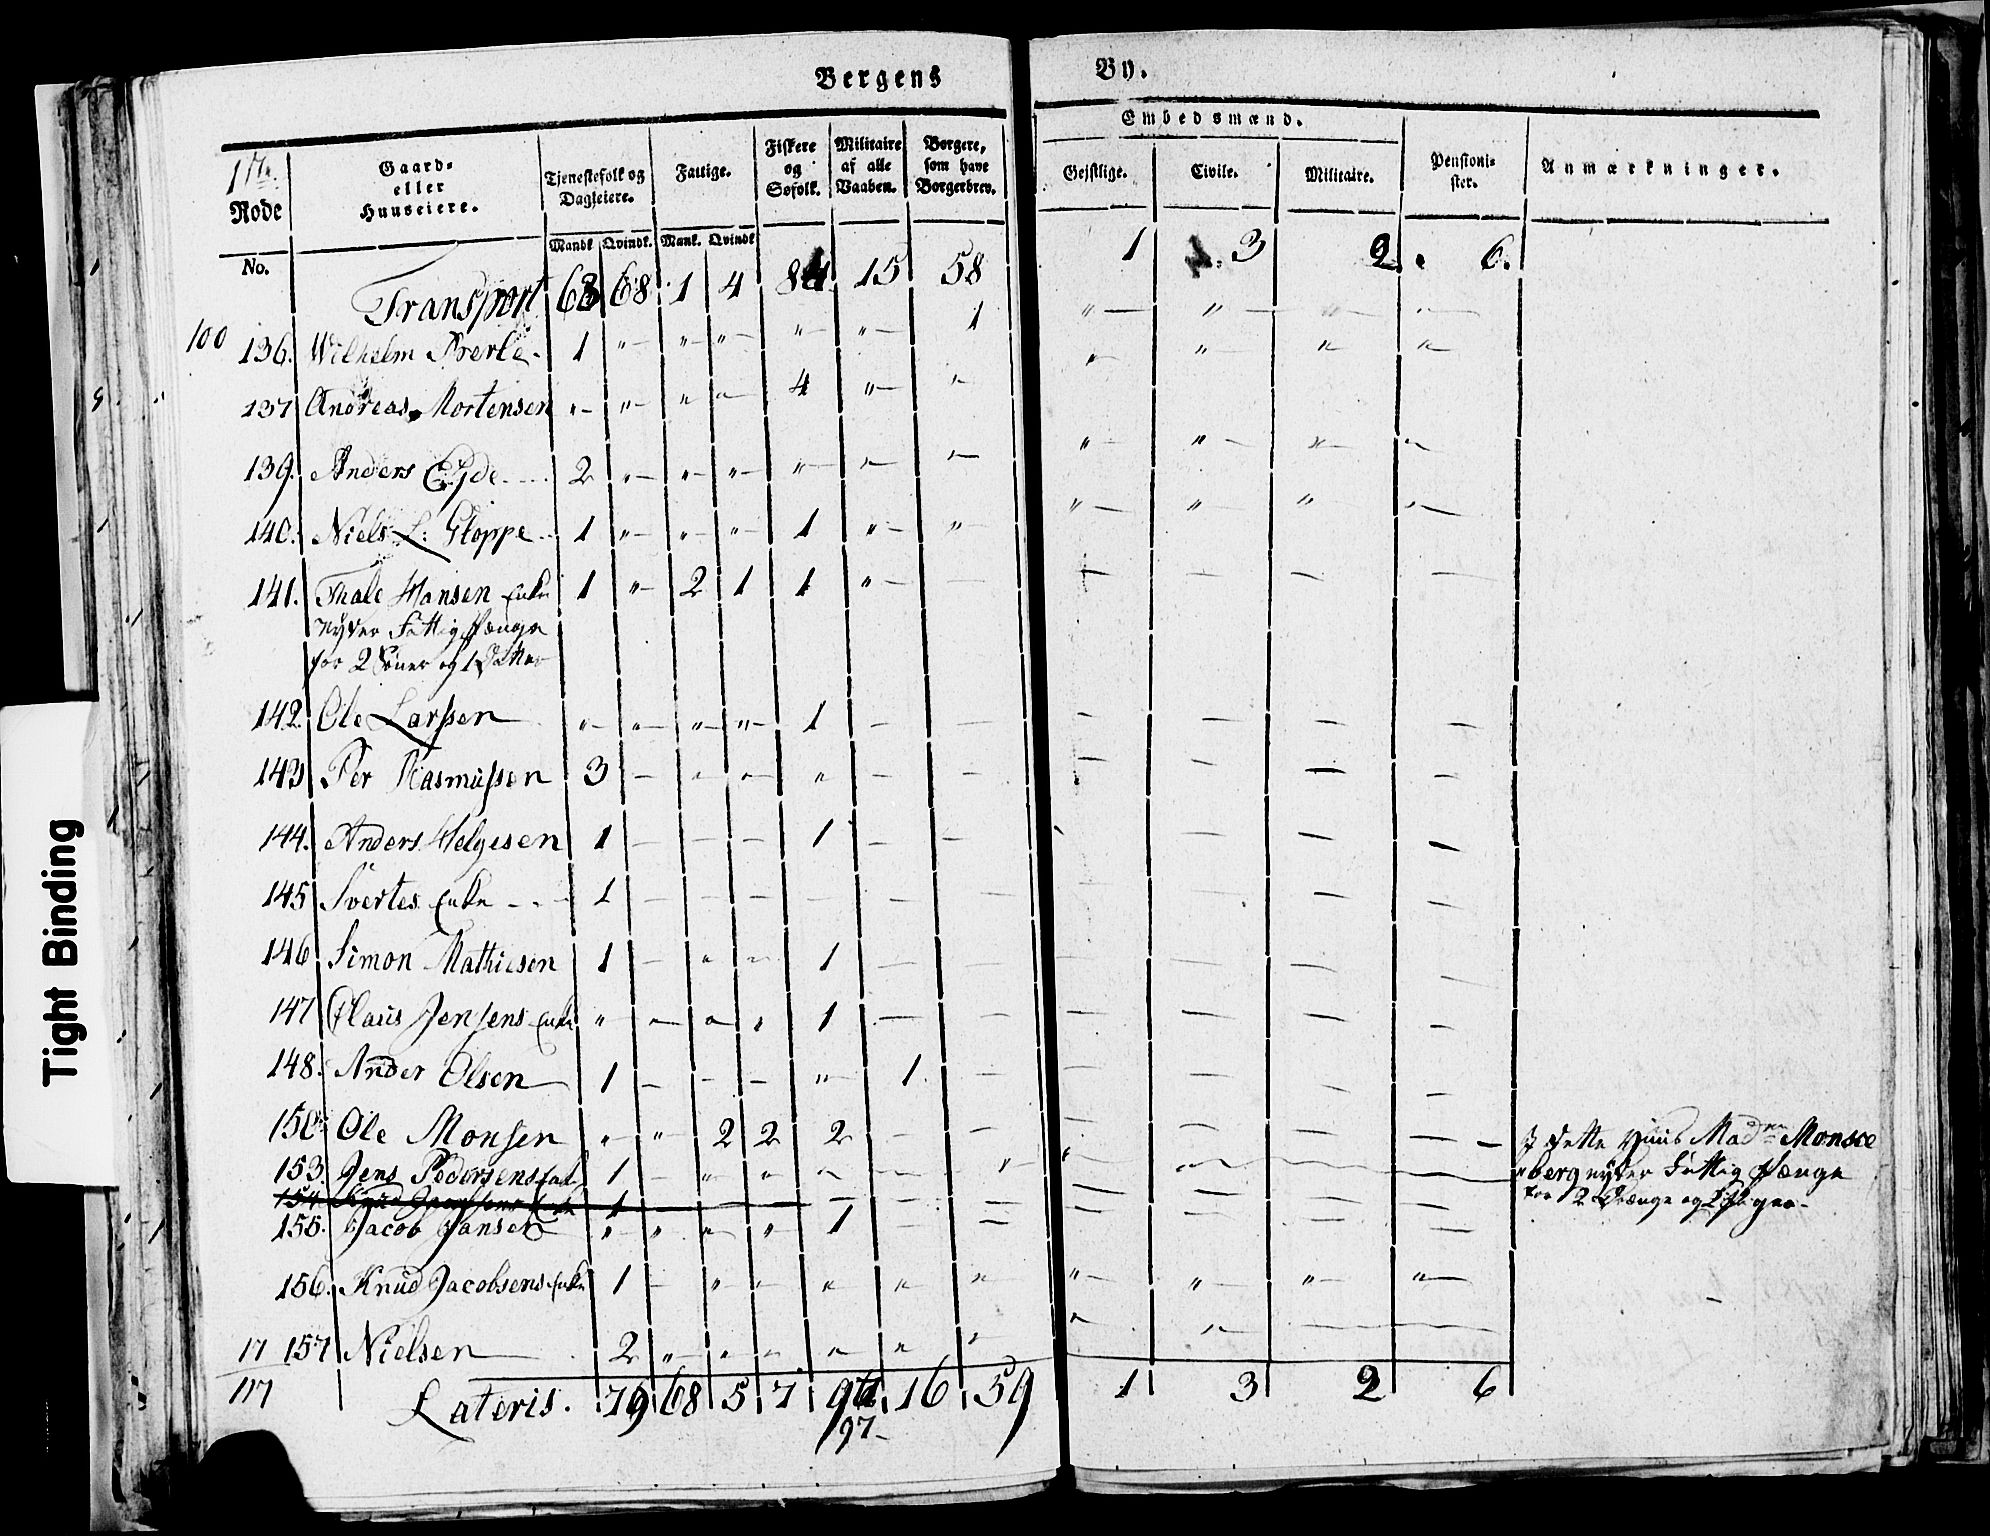 Bergens By.
17de Rode No. Gaard- eller Huuseiere. Tjenestefolk og Dagleiere. Mandk. Qvindk. Fattige. Mank. Qvindk. Fiskere og Søfolk. Militaire af alle Vaaben. Borgere, som have Borgerbrev. Embedsmænd. Geistlige. Civile. Militaire. Pensioni- ster. Anmærkninger.
Transport 63 68 1 4 84 15 58 1 3 2 6.
100 136. Wilhelm 1 " " " " " 1 " " " "
137 Andreas Mortensen " " " " 4 " " " " " "
139. Anders Eyde 2 " " " " " " " " " "
140. Niels L: Gloppe 1 " " " 1 " " " " " "
141. Thale Hansen Enke 1 " 2 1 1 " — — — — —
nyder Fattig Penge
for 2 Sönner og 1 Datter
142. Ole Larssen " " " " 1 — — — — — —
143 Per Rasmussen 3 — " " " — — — — — —
144. Anders Helgesen 1 — — — 1 — — — — — —
145 Sverles Enke 1 — — — — — — — — — —
146 Simon Mathiesen 1 — " " 1 — — — — — —
147 Claus Jensens Enke " " " " 1 — — — — — —
148. Ander Olsen 1 — — — " 1. — — — — —
150 Ole Monsen " " 2 2 2 — — — — — — I dette Huus Madm Monsce
153. Jens Pedersens Enke 1 — " " " — " " " — — berg nyder Fattig Penge
154 Knud Jacobsens Enke 1 — — — — — — — — — — for 2 Drænge og 2 Piger
155. Jacob Jansen " " " " 1 — — — — —
156. Knud Jacobsens Enke 1 — " " " " " " " " "
17 157 Nielsen 2 " " " " " " " " — —
117 Lateris. 79 68 5 7 94 16 59 1 3 2 6
97
Tight Binding